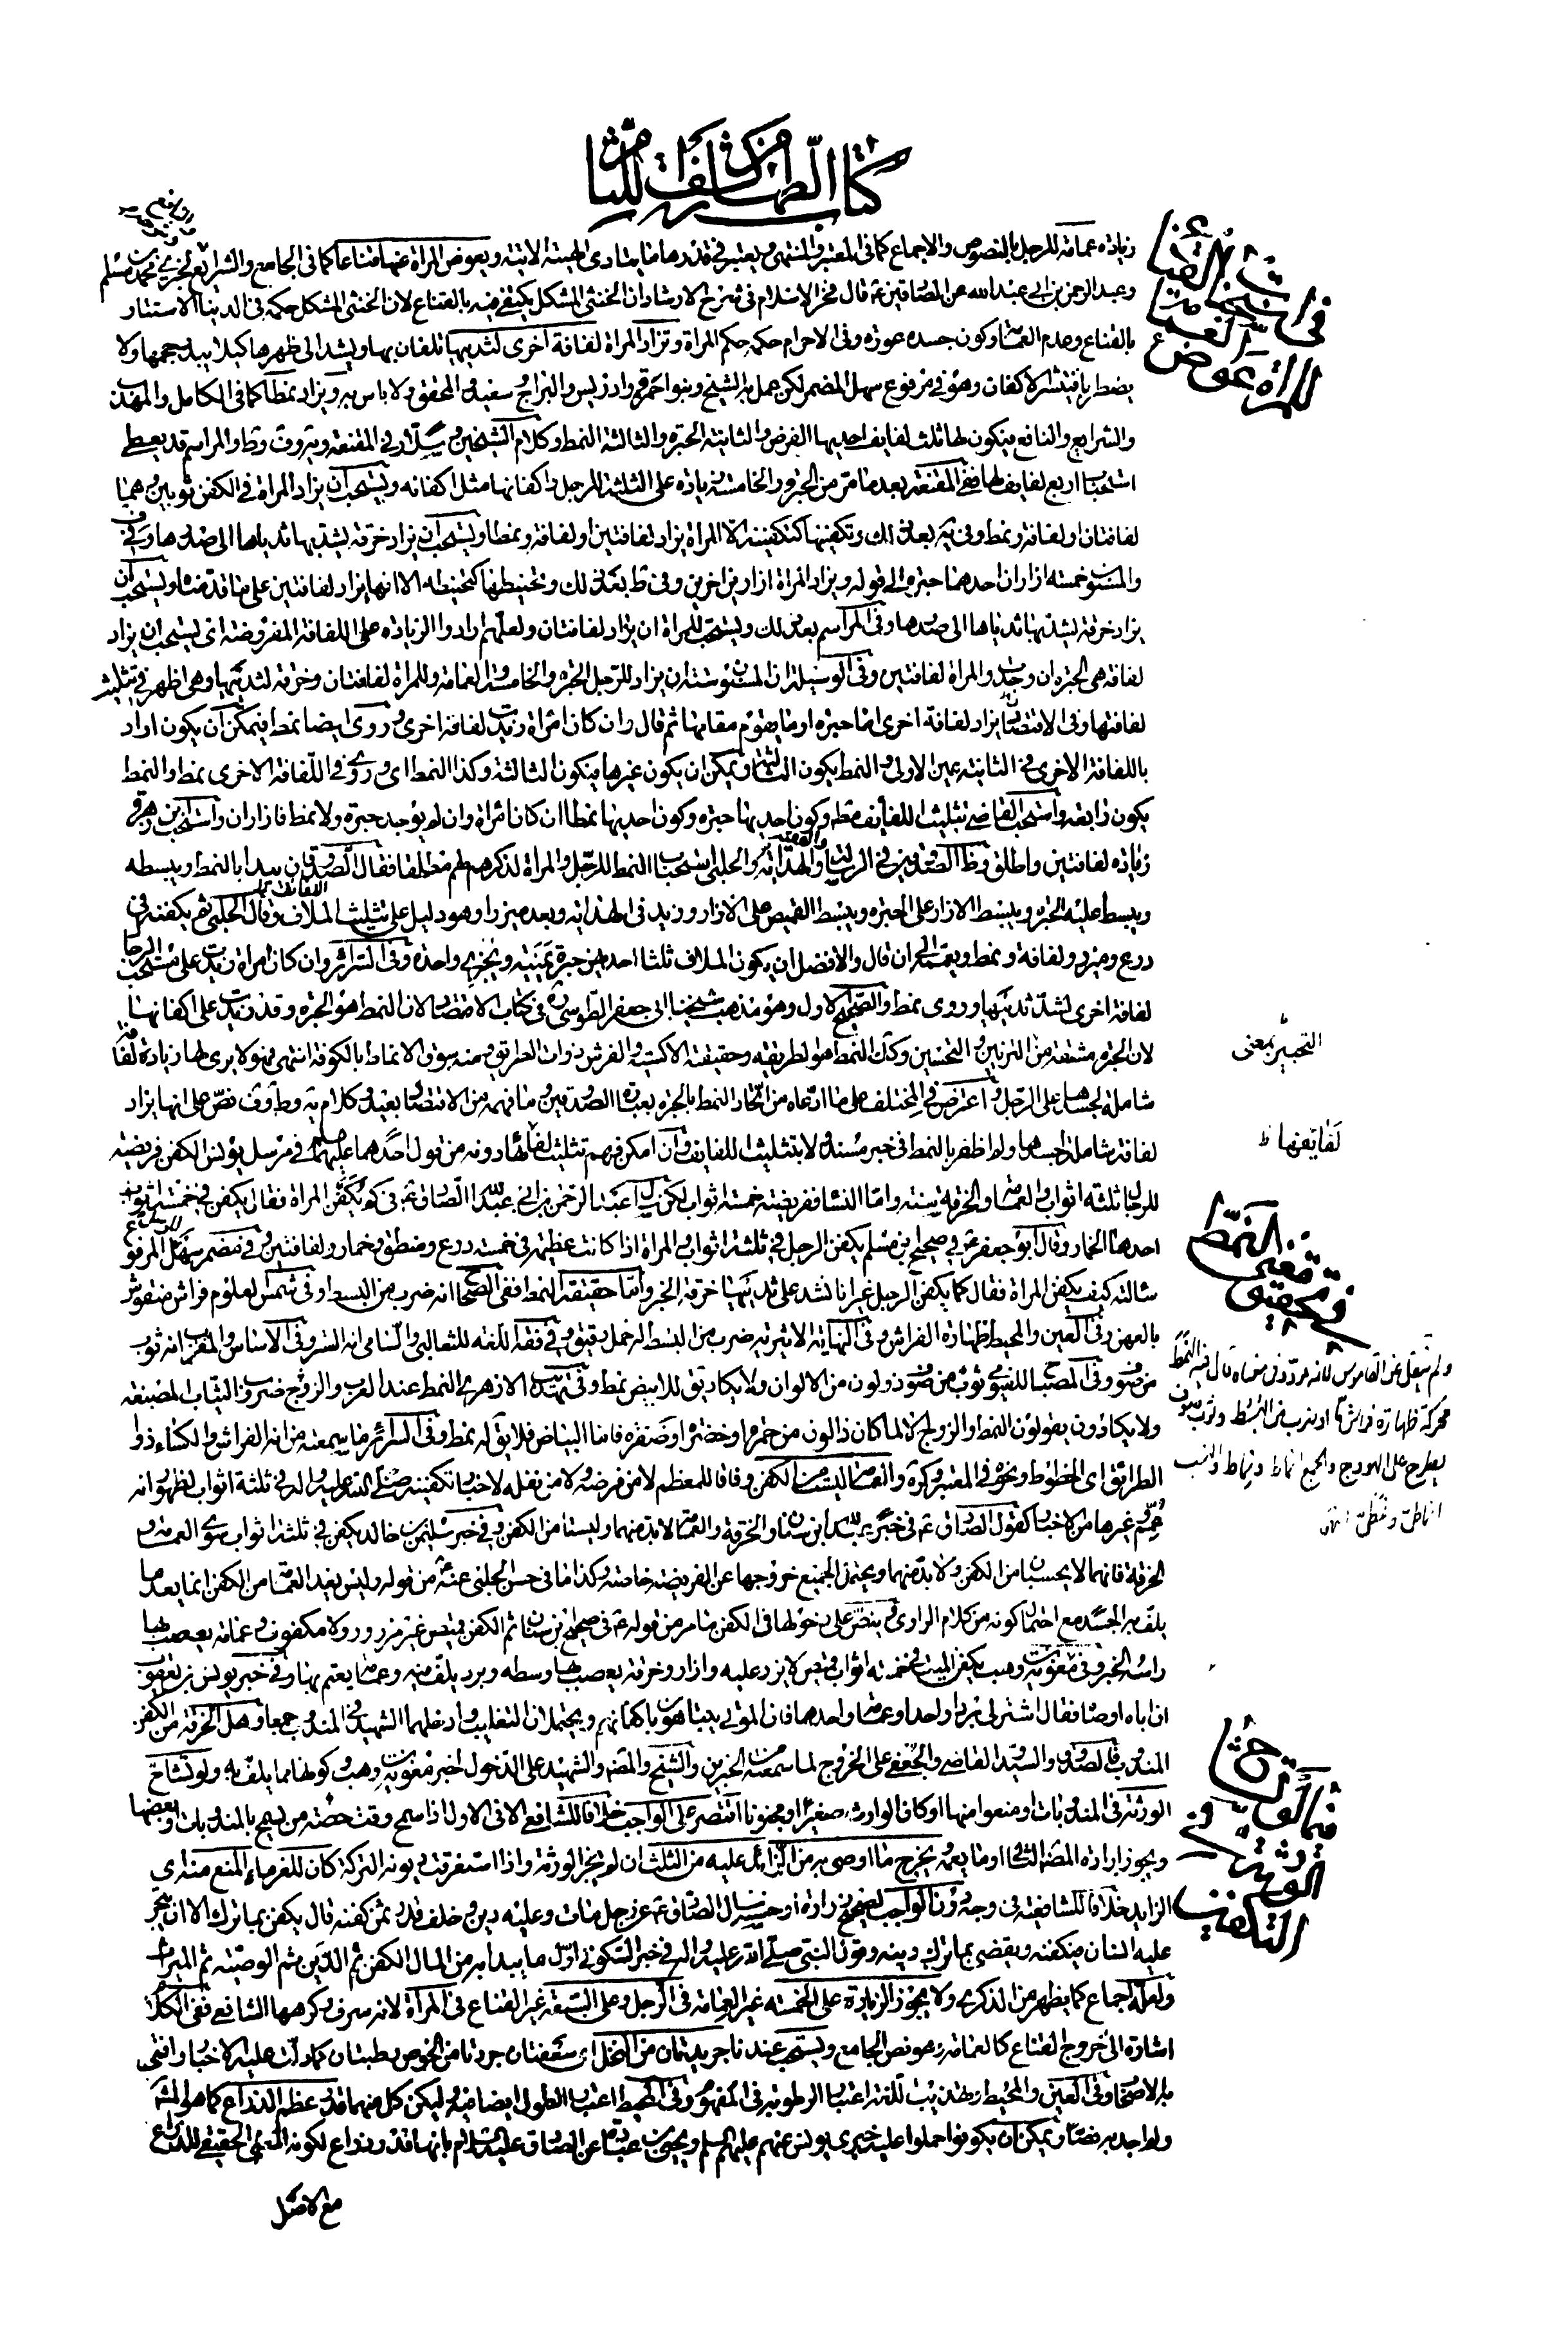 كتاب الطهارة من كشف اللثام
زيادة عمامة للرجل بالنصوص والاجماع كما في المعتبر والمنتهى ويعتبر في قدرها ما يتأدى الهيئة الاتية ويعوض المراة عنها قناعا كما في الجامع والشرايع لخبري محمد بن مسلم
وعبد الرحمن بن ابي عبد الله عن الصادقين ع قال فخر الاسلام في شرح الارشاد ان الخنثى المشكل يكتفى فيه بالقناع لان الخنثى المشكل حكمه في الدنيا الاستتار
بالقناع وعدم العمامة وكون جسده عورة وفي الاحرام حكمه حكم المراة وتزاد المراة لفافة اخرى لثدييها تلفان بها ويشد الى ظهرها كيلا يبدو حجمها ولا
يضطربا فتنتشر الاكفان وهو في مرفوع سهل المضمر لكن عمل به الشيخ وبنو احمزة وادريس والبراج وسعيد والمحقق ولا باس به ويزاد نمطا كما في الكامل والمهذب
والشرايع والنافع فيكون لها ثلث لفايف احديها الفرض والثانية الحبرة والثالثة النمط وكلام الشيخين وسلار في المقنعة وية وف وط والمراسم قد يعطي
استحباب اربع لفايف لها ففي المقنعة بعد ما مر من الحبرة والخامسة زيادة على الثلثة للرجل واكفانها مثل اكفانه ويستحب ان يزاد المراة في الكفن ثوبين وهما
لفافتان او لفافة ونمط وفي ية بعد ذلك وتكفينها كتكفينه الا المراة يزاد لفافتين او لفافة ونمطا ويستحب ان يزاد خرقة يشد بها ثدياها الى صدرها وفي ف
والمسنون خمسة ازاران احدهما حبرة الى قوله ويزاد المراة ازارين اخرين وفي ط بعد ذلك وتحنيطها كتحنيطه الا انها يزاد لفافتين على ما قدمناه ويستحب ان
يزاد خرقة يشد بها ثدياها الى صدرها وفي المراسم بعد ذلك ويستحب للمراة ان يزاد لفافتان ولعلهم ارادوا الزيادة على اللفافة المفروضة اي يستحب ان يزاد
لفافة هي الحبرة ان وجدت والمراة لفافتين وفي الوسيلة ان المسنون ستة ان يزاد للرجل الحبرة والخامسة والعمامة وللمراة لفافتان وخرقة لثدييها وهي اظهر في تثليث
لفافتها وفي الاقتصاد يزاد لفافة اخرى اما حبرة او ما يقوم مقامها ثم قال وان كان امراة زيدت لفافة اخرى وروى ايضا نمط فيمكن ان يكون اراد
باللفافة الاخرى في الثانية عين الاولى والنمط يكون الثالثة ويمكن ان يكون غيرها فيكون الثالثة وكذا النمط اي وروي في اللفافة الاخرى نمط او النمط
يكون رابعة واستحب القاضي تثليث اللفايف مط وكون احديها حبرة وكون احديها نمطا ان كان امراة وان لم يوجد حبرة ولا نمط فازاران واستحب ابن زهرة
زيادة لفافتين واطلق وظ الصدوقين في الرسالة والهداية والفقيه والحلبي استحباب النمط للرجل والمراة لذكرهم لهم مطلقا فقال الصدوقان يبدا بالنمط ويبسطه
ويبسط عليه الحبرة ويبسط الازار على الحبرة ويبسط القميص على الازار وزيد في الهداية وبعد ميزرا وهو دليل على تثليث الملاف اللفايف لها وقال الحلبي ثم يكفنه في
درع وميزر ولفافة ونمط ويعممه الى ان قال والافضل ان يكون الملاف ثلثا احديهن حبرة يمنية ويجزي واحدة وفي السرائر وان كان امراة زيدت على مستحب الرجال
لفافة اخرى لشد ثدييها وروى نمط والصحيح الاول وهو مذهب شيخنا ابي جعفر الطوسي ره في كتاب الاقتصاد لان النمط هو الحبرة وقد زيدت على اكفانها
لان الحبرة مشتقة من التزيين والتحسين وكذلك النمط هو الطريقة وحقيقته الاكسية والفرش ذوات الطرايق ومنه سوق الانماط بالكوفة انتهى فهو لا يرى لها زيادة لفافة
شاملة لجسدها على الرجل واعترض في المختلف على ما ادعاه من اتحاد النمط بالحبرة بعبارة الصدوقين وما فهمه من الاقتصاد بعيد وكلام ية وط وف نص على انها يزاد
لفافة شاملة لجسدها ولم اظفر بالنمط في خبر مسند ولا بتثليث اللفايف وان امكن فهم تثليث لفائفها دونه من قول احدهما عليهما السلام في مرسل يونس الكفن فريضته
للرجال ثلثة اثواب والعمامة والخرقة سنة واما النساء ففريضته خمسة اثواب لكن سال عبد الرحمن بن ابي عبد الله الصادق ع في كم يكفن المراة فقال يكفن في خمسة اثواب
احدها الخمار وقال ابو جعفر ع في صحيح ابن مسلم يكفن الرجل في ثلثة اثواب والمراة اذا كانت عظيمة في خمسة درع ومنطق وخمار ولفافتين وفي مضمر سهل المرفوع
سالته كيف يكفن المراة فقال كما يكفن الرجل غير انا نشد على ثدييها خرقة الخبر واما حقيقة النمط ففي الصحاح انه ضرب من البسط وفي شمس العلوم فراش منقوش
بالعهن وفي العين والمحيط ظهارة الفراش وفي النهاية الاثيرية ضرب من البسط له خمل رقيق وفي فقه اللغة للثعالبي والسامي انه الستر وفي الاساس والمغرب انه ثوب
من صوف وفي المصباح للفيومي ثوب من صوف ذو لون من الالوان ولا يكاد يق للابيض نمط وفي تهذيب الازهري النمط عند العرب والزوج ضروب الثياب المصبغة
ولا يكادون يقولون النمط والزوج الا لما كان ذا لون من حمرة او خضرة او صفرة فاما البياض فلا يق له نمط وفي السرائر ما سمعته من انه الفراش والكساء ذو
الطرائق اي الخطوط ونحوه في المعتبر وكره والعمامة ليست من الكفن وفاقا للمعظم لا من فرضه ولا من نفله لاخبار تكفينه صلى الله عليه واله في ثلثة اثواب لظهور انه
عمم وغيرها من الاخبار كقول الصادق ع في خبر عبد الله بن سنان والخرقة والعمامة لا بد منهما وليستا من الكفن وفي خبر سليمن بن خالد يكفن في ثلثة اثواب سوى العمامة و
الخرقة فانهما لا يحسبان من الكفن ولا بد منهما ويحتمل الجميع خروجها عن الفريضة خاصة وكذا ما في حسن الحلبي عنه ع من قوله وليس يعد العمامة من الكفن انما يعد ما
يلف به الجسد مع احتمال كونه من كلام الراوي وينص على دخولها في الكفن ما مر من قوله ع في صحيح ابن سنان ثم الكفن قميص غير مزرور ولا مكفوف وعمامة يعصب بها
راسه الخبر وفي خبر معوية بن وهب يكفن الميت في خمسة اثواب قميص لا يزر عليه وازار وخرقة يعصب بها وسطه وبرد يلف فيه وعمامة يعتم بها وفي خبر يونس بن يعقوب
ان اباه اوصاه فقال اشتر لي بردا واحدا وعمامة واحدها فان الموتى يتباهون باكفانهم ويحتملان التغليب وادخلهما الشهيد في المندوب جمعا وهل الخرقة من الكفن
المندوب فالصدوق والسيد القاضي والجعفي على الخروج لما سمعت من الخبرين والشيخ والمصنف والشهيد على الدخول لخبر معوية بن وهب وكونها مما يلف به ولو تشاح
الورثة في المندوبات او منعوا منها او كان الوارث صغيرا او مجنونا اقتصر على الواجب خلافا للشافعي الا في الاول اذا سمح وقت حضته من يسمح بالمندوبات وبعضها
ويجوز ارادة المصنف الثاني او ما يعمه يخرج ما اوصى به من الزائد عليه من الثلث ان لم يجز الورثة واذا استغرقت ديونه التركة كان للغرماء المنع منه اي
الزايد خلافا للشافعية في وجه دون الواجب لصحيح زرارة او حسنه سال الصادق ع عن رجل مات وعليه دين وخلف قدر ثمن كفنه قال يكفن بما ترك الا ان يتجر
عليه انسان فيكفنه ويقضى بما ترك دينه وقول النبي صلى الله عليه واله في خبر السكوني اول ما يبدا به من المال الكفن ثم الدين ثم الوصية ثم الميراث
ولعله اجماع كما يظهر من الذكرى ولا يجوز الزيادة على الخمسة غير العمامة في الرجل وعلى السبعة غير القناع في المراة لانه سرف وكرهها الشافعي ففي الكلام
اشارة الى خروج القناع كالعمامة وهو نص الجامع ويستحب عندنا جريدتان من النخل اي سعفتان جردتا من الخوص رطبتان كما دلت عليه الاخبار وافتى
به الاصحاب وفي العين والمحيط وتهذيب اللغة اعتبار الرطوبة في المفهوم وفي المحيط اعتبار الطول ايضا فيه وليكن كل منهما قدر عظم الذراع كما هو المشهور
ولم اجد به نصا ويمكن ان يكونوا حملوا عليه خبري يونس عنهم عليهم السلم ويحيى بن عبادة عن الصادق عليه السلام بانهما قدر ذراع لكونه المعنى الحقيقي للذراع
مع الاصل
في استحباب القناع للمراة عوض العمامة
التحبير بمعنى
لفايفها ظ
في تحقيق معنى النمط
ولم ينقل عن القاموس لانه مردد في معناه قال فيه النمط
محركة ظهارة فراش ما او ضرب من البسط وثوب صوف
يطرح على الهودج والجمع انماط ونماط والنسب
انماطي ونمطي انتهى
فيما لو تشاح الورثة في التكفين